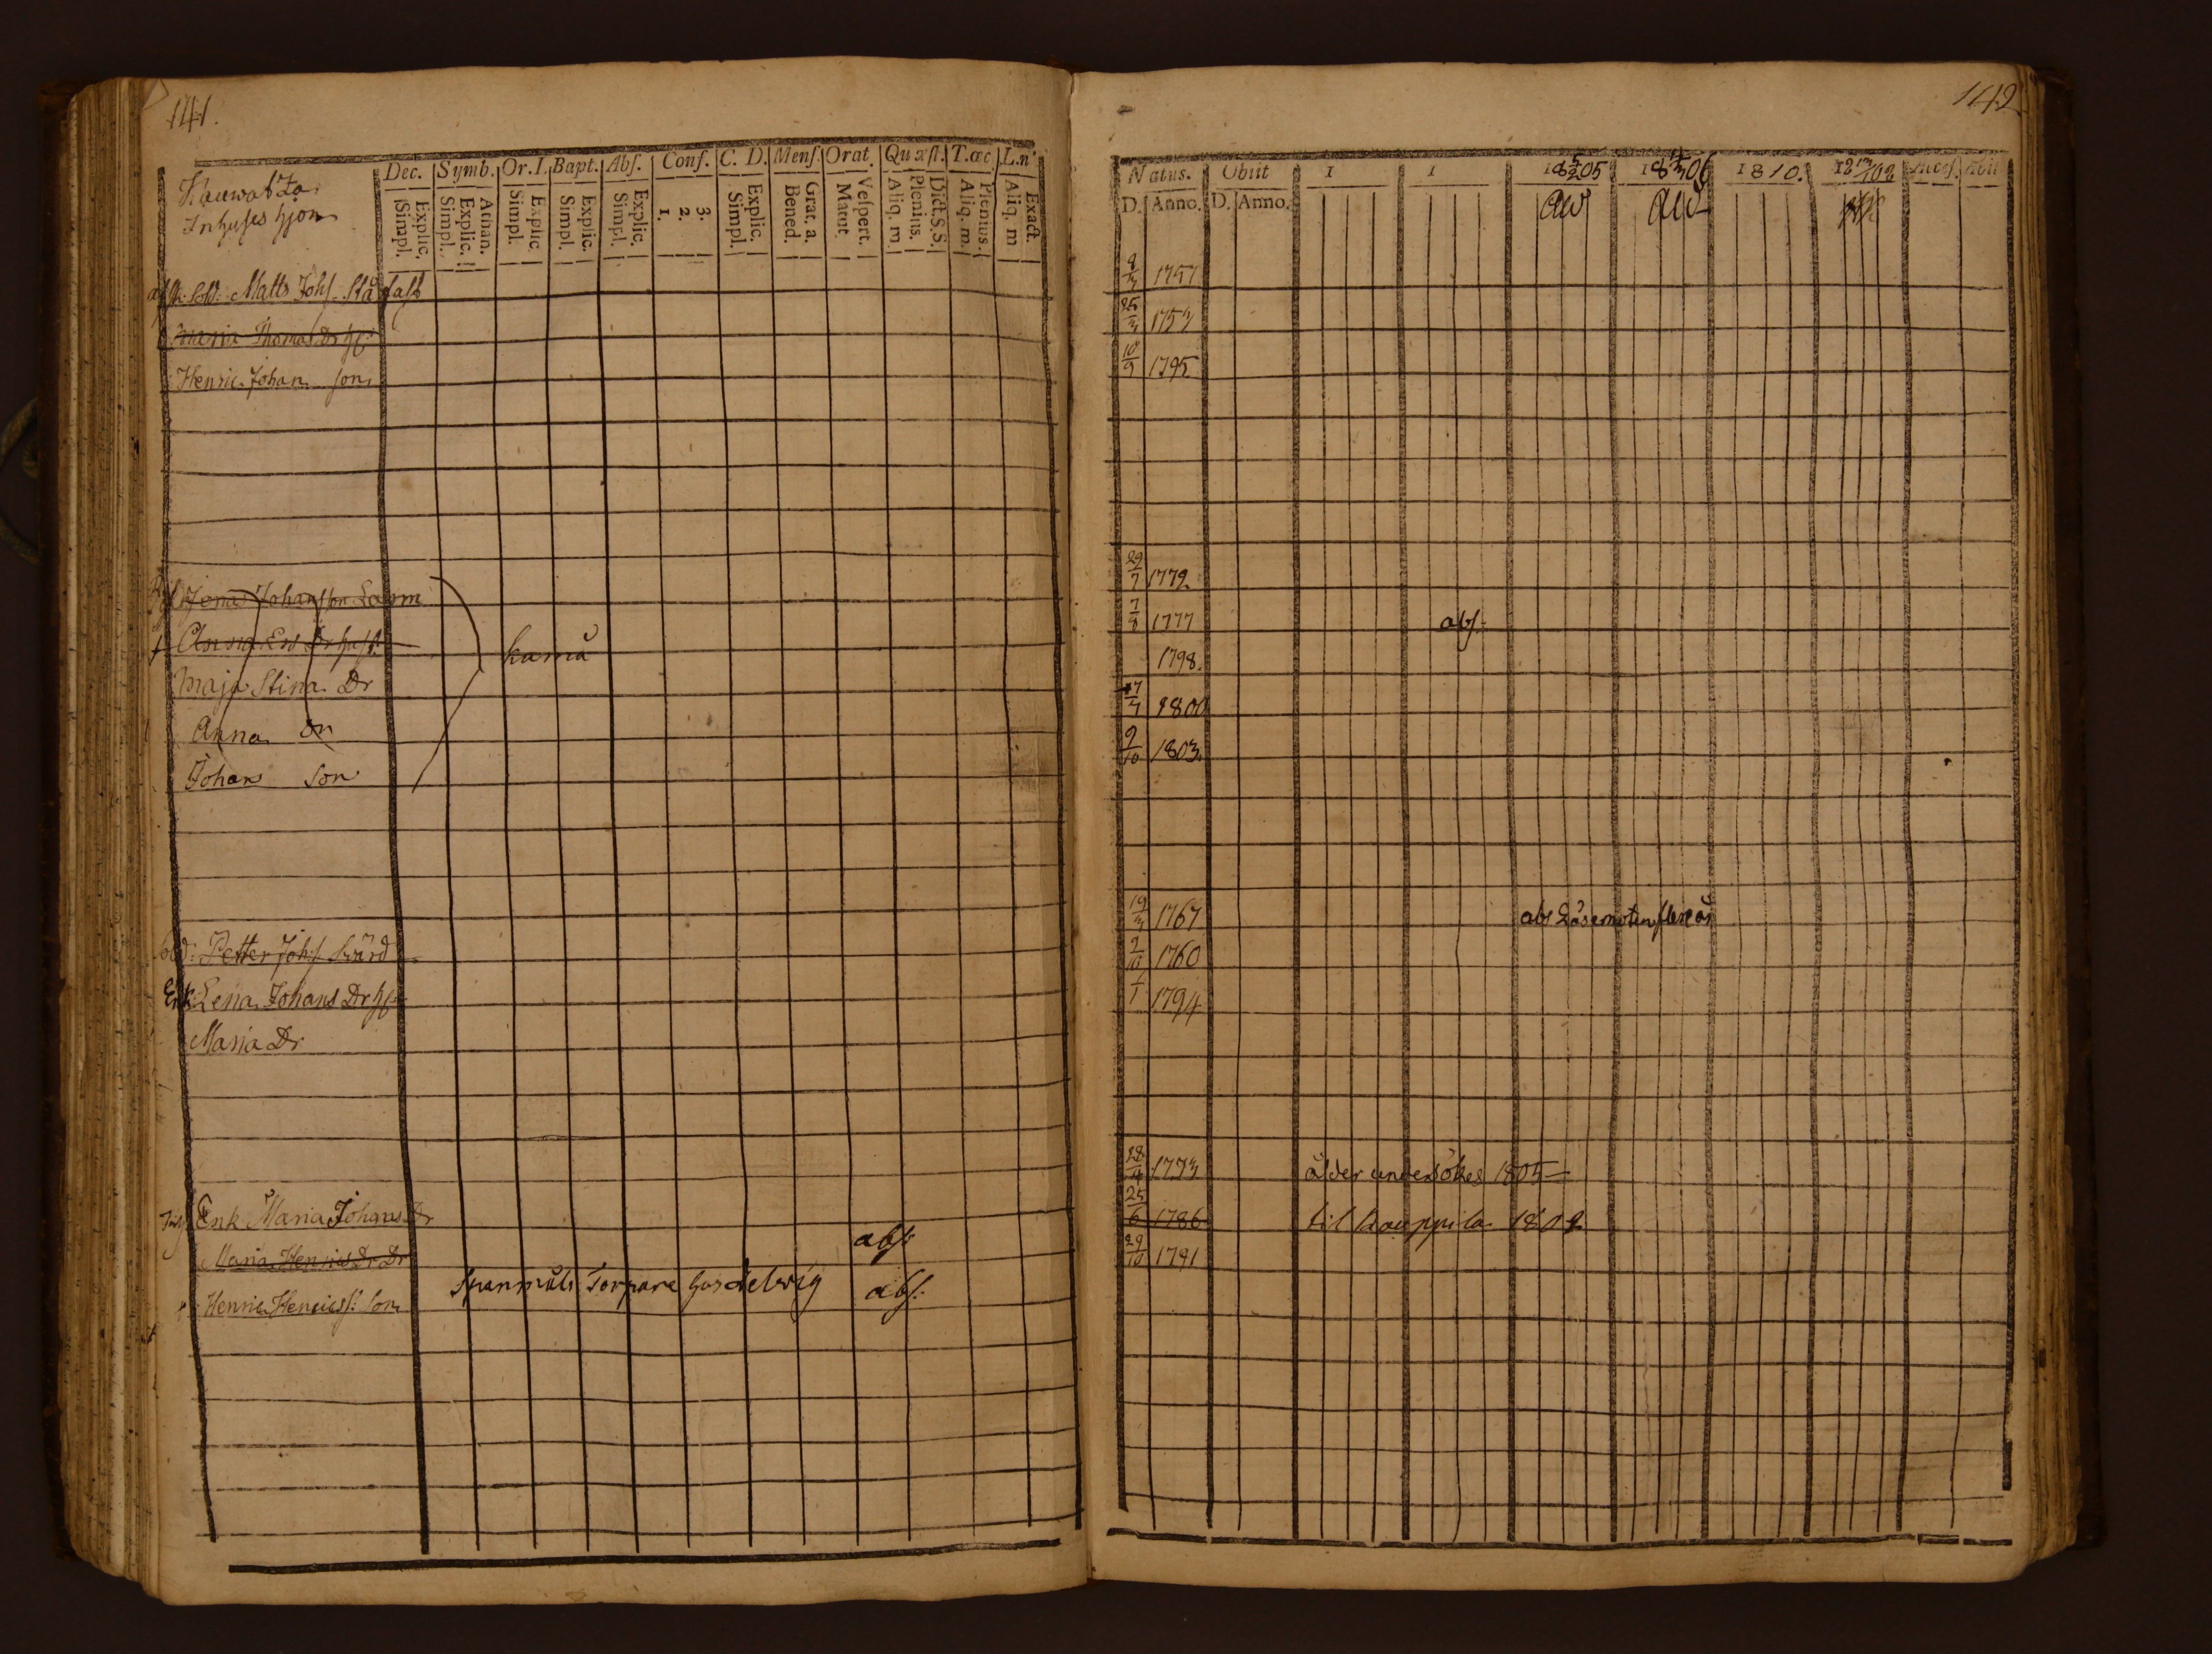 141.
Inhyses hjon
Dec. Symb. Or.I. Bapt. Abſ. Conf. C. D. Menſ. Orat. Quæſt. T.œc L.n
Explic. Simpl. Athan. Explic. Simpl. Explic. Simpl. Explic. Simpl. Explic. Simpl. 3. 2. 1. Explic. Simpl. Grat. a. Bened. Veſpert. Matut. Dict.S.S. Plenius. Aliq. m. Plenius. Aliq. m. Exact. Aliq. m
Sold: Matts Johſ. Ståfast
Maria Thomas Dr hu
Henric Johan son
Johansson
Anna Dr hust
kama
Maja Stina Dr
Anna Dr
Johan Son
Sold: Petter Johſ Svärd
Enk: Lena Johans Dr hu
Maria Dr
Enk Maria Johans Dr
Maria Henrics Dr Dr abſ.
Henric Henricsſ: Son Torpare hos abſ.
142
Natus. Obiit 1 1 1805 1806 1810. 18 Acceſ. Abiit
D. Anno. D. Anno.
8/3 1757
25/3 1753
10/9 1795
29/7 1779
7/8 1777 abſ.
1798.
17/7 1800
9/10 1803
19/3 1767 abs Läsemöten flere år
2/10 1760
1/1 1794
28/4 1773 ålder undersökes 1805
25/6 1786 til Kauppila 1809
29/10 1791